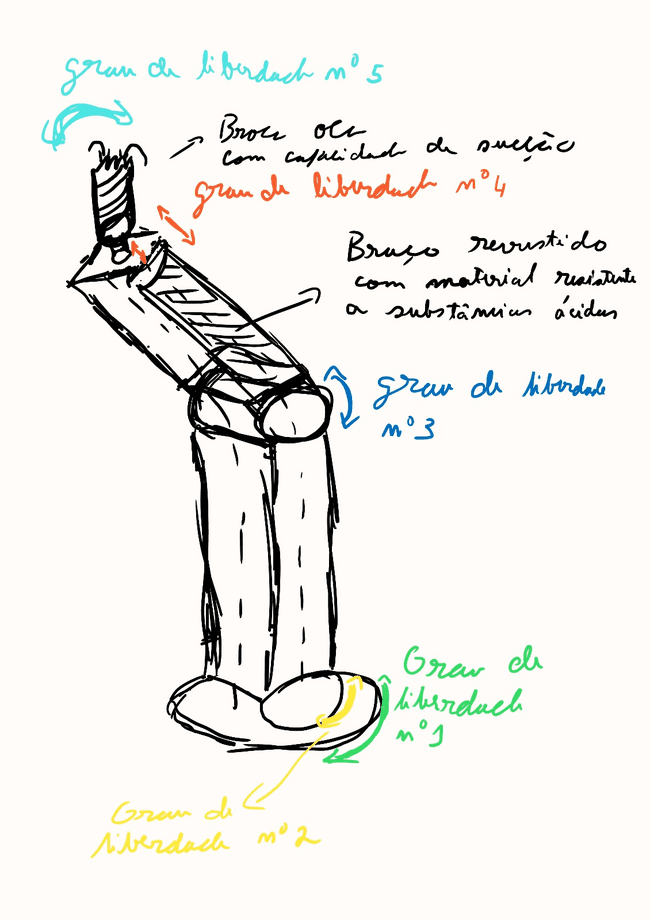 grau de liberdade nº 5
Broca oca
com capacidade de sucção
grau de liberdade nº 4
Braço revestido
com material resistente
a substâncias ácidas
grau de liberdade
nº 3
Grau de
liberdade
nº 1
Grau de
liberdade nº 2